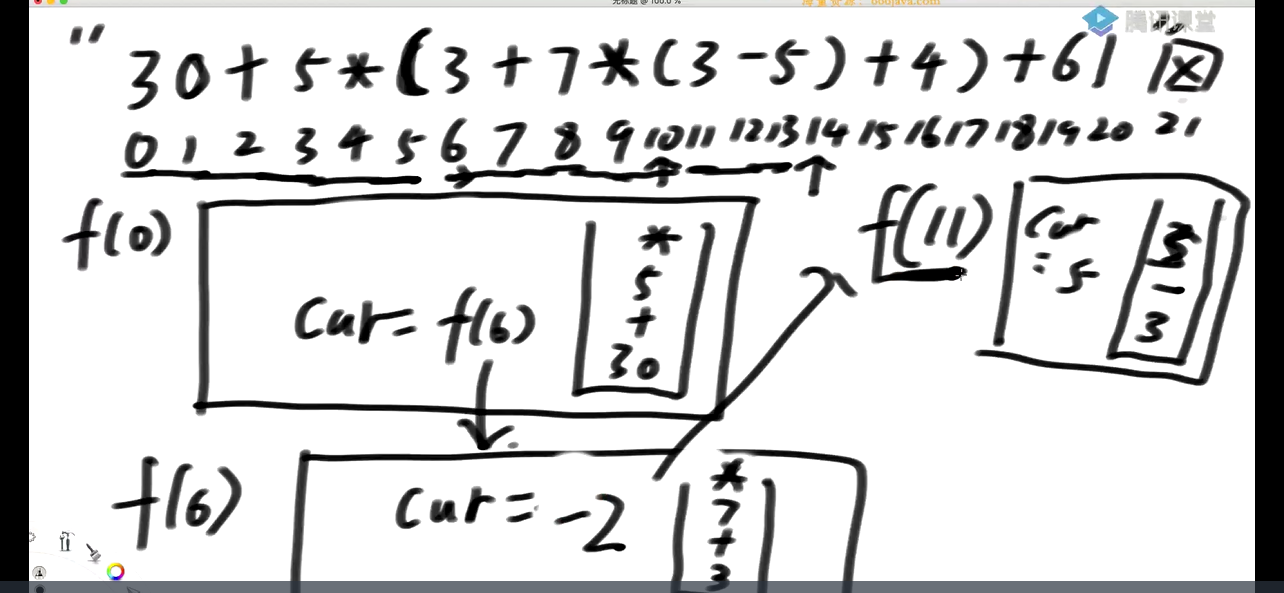 无标题 @ 100.0 %
海量资源：boojava.com
腾讯课堂
"30+5*(3+7*(3-5)+4)+61 x
0 1 2 3 4 5 6 7 8 9 10 11 12 13 14 15 16 17 18 19 20 21
f(0)
cur = f(6)
*
5
+
30
f(11)
cur = 5
-
3
f(6)
cur = -2
*
7
+
3